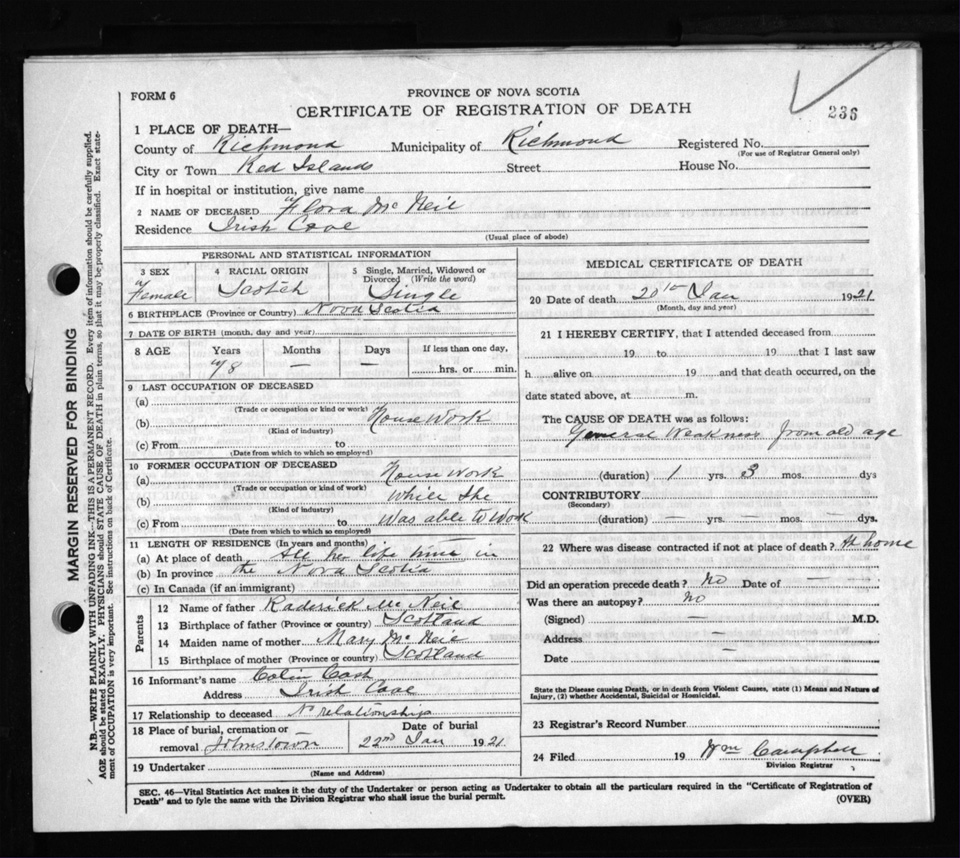 FORM 6
PROVINCE OF NOVA SCOTIA
CERTIFICATE OF REGISTRATION OF DEATH
236
1 PLACE OF DEATH—
County of Richmond Municipality of Richmond Registered No.
(For use of Registrar General only)
City or Town Red Islands Street House No.
If in hospital or institution, give name
2 NAME OF DECEASED Flora Mc Neil
Residence Irish Cove
(Usual place of abode)
PERSONAL AND STATISTICAL INFORMATION
3 SEX Female
4 RACIAL ORIGIN Scotch
5 Single, Married, Widowed or Divorced (Write the word) Single
6 BIRTHPLACE (Province or Country) Nova Scotia
7 DATE OF BIRTH (month, day and year)
8 AGE Years Months Days If less than one day,
8 — — hrs. or min.
9 LAST OCCUPATION OF DECEASED
(a)
(Trade or occupation or kind or work)
(b) House Work
(Kind of industry)
(c) From to
(Date from which to which so employed)
10 FORMER OCCUPATION OF DECEASED
(a) House Work
(Trade or occupation or kind of work)
(b) While She
(Kind of industry)
(c) From to Was able to Work
(Date from which to which so employed)
11 LENGTH OF RESIDENCE (In years and months)
(a) At place of death All her life time in
(b) In province the Nova Scotia
(c) In Canada (if an immigrant)
Parents
12 Name of father Raderick Mc Neil
13 Birthplace of father (Province or country) Scotland
14 Maiden name of mother Mary Mc Neil
15 Birthplace of mother (Province or country) Scotland
16 Informant's name Colin Cash
Address Irish Cove
17 Relationship to deceased No relationship
18 Place of burial, cremation or removal Johnstown
Date of burial 22nd Jan 1921
19 Undertaker
(Name and Address)
MEDICAL CERTIFICATE OF DEATH
20 Date of death 20th Jan 1921
(Month, day and year)
21 I HEREBY CERTIFY, that I attended deceased from
19 to 19 that I last saw
h alive on 19 and that death occurred, on the
date stated above, at m.
The CAUSE OF DEATH was as follows:
General Weakness from old age
(duration) 1 yrs. 3 mos. dys
CONTRIBUTORY
(Secondary)
(duration) — yrs. — mos. — dys.
22 Where was disease contracted if not at place of death? At home
Did an operation precede death? No Date of — —
Was there an autopsy? No
(Signed) — M.D.
Address —
Date —
State the Disease causing Death, or in death from Violent Causes, state (1) Means and Nature of
Injury, (2) whether Accidental, Suicidal or Homicidal.
23 Registrar's Record Number
24 Filed 19 Wm Campbell
Division Registrar
SEC. 46—Vital Statistics Act makes it the duty of the Undertaker or person acting as Undertaker to obtain all the particulars required in the "Certificate of Registration of
Death" and to fyle the same with the Division Registrar who shall issue the burial permit.
(OVER)
MARGIN RESERVED FOR BINDING
N.B.—WRITE PLAINLY WITH UNFADING INK—THIS IS A PERMANENT RECORD. Every item of information should be carefully supplied.
AGE should be stated EXACTLY. PHYSICIANS should STATE CAUSE OF DEATH in plain terms, so that it may be properly classified. Exact state-
ment of OCCUPATION is very important. See instructions on back of Certificate.